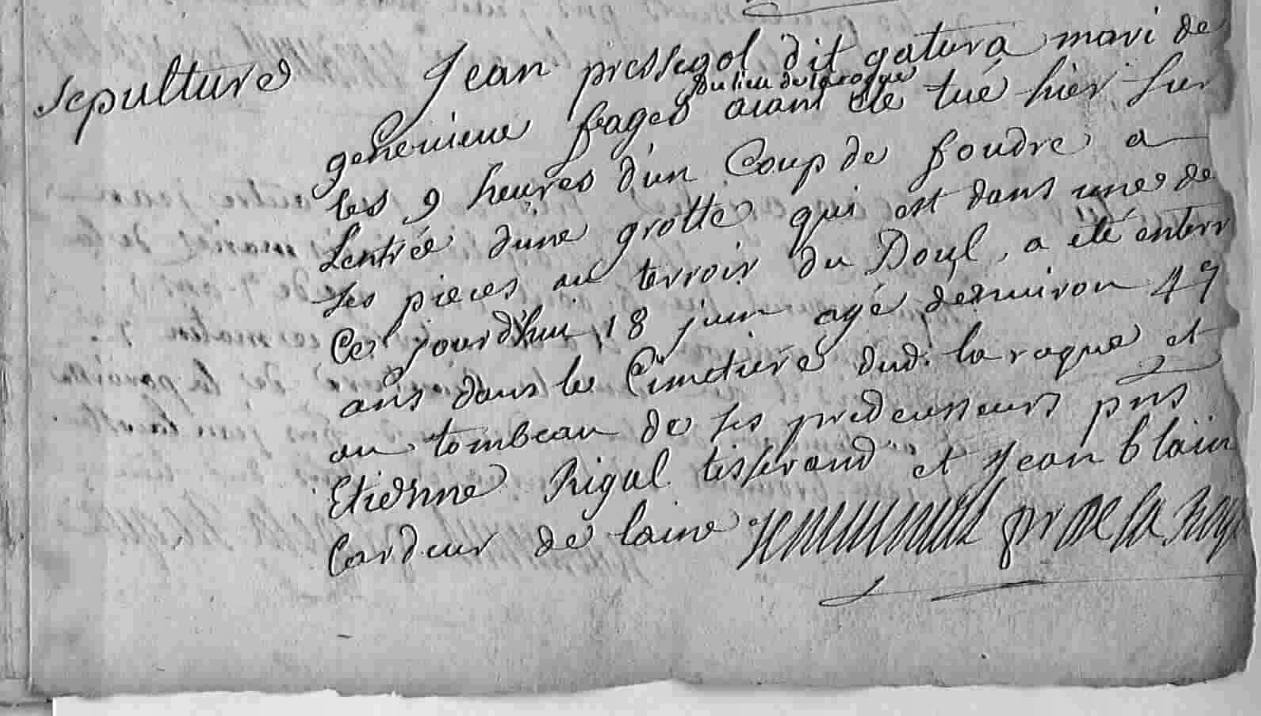 sepulture
Jean pressegol dit gatura mari de
du lieu de laroque
genevieve frages aiant été tué hier sur
les 9 heures d'un Coup de foudre a
Lentrée d'une grotte qui est dans une de
ses pieces au terroir du Doul, a été enterr
Ce jourdhuy 18 juin agé denviron 49
ans dans le Cimetiere dud. la roque et
au tombeau de ses predecesseurs pnts
Etienne Rigal tisserand et Jean blain
Cardeur de laine pr de la Roq